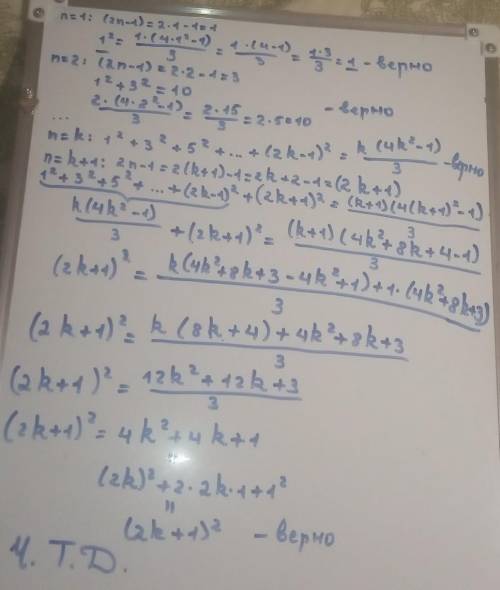 n=1: (2n-1)=2·1-1=1
1²= 1·(4·1²-1)/3 = 1·(4-1)/3 = 1·3/3 = 1 - верно
n=2: (2n-1)=2·2-1=3
1²+3²=10
2·(4·2²-1)/3 = 2·15/3 = 2·5=10 - верно
...
n=k: 1²+3²+5²+...+(2k-1)² = k(4k²-1)/3 - верно
n=k+1: 2n-1=2(k+1)-1=2k+2-1=(2k+1)
1²+3²+5²+...+(2k-1)²+(2k+1)² = (k+1)(4(k+1)²-1)/3
k(4k²-1)/3 + (2k+1)² = (k+1)(4k²+8k+4-1)/3
(2k+1)² = k(4k²+8k+3-4k²+1)+1·(4k²+8k+3)/3
(2k+1)² = k(8k+4)+4k²+8k+3/3
(2k+1)² = 12k²+12k+3/3
(2k+1)² = 4k²+4k+1
=
(2k)²+2·2k·1+1²
=
(2k+1)² - верно
Ч.Т.Д.